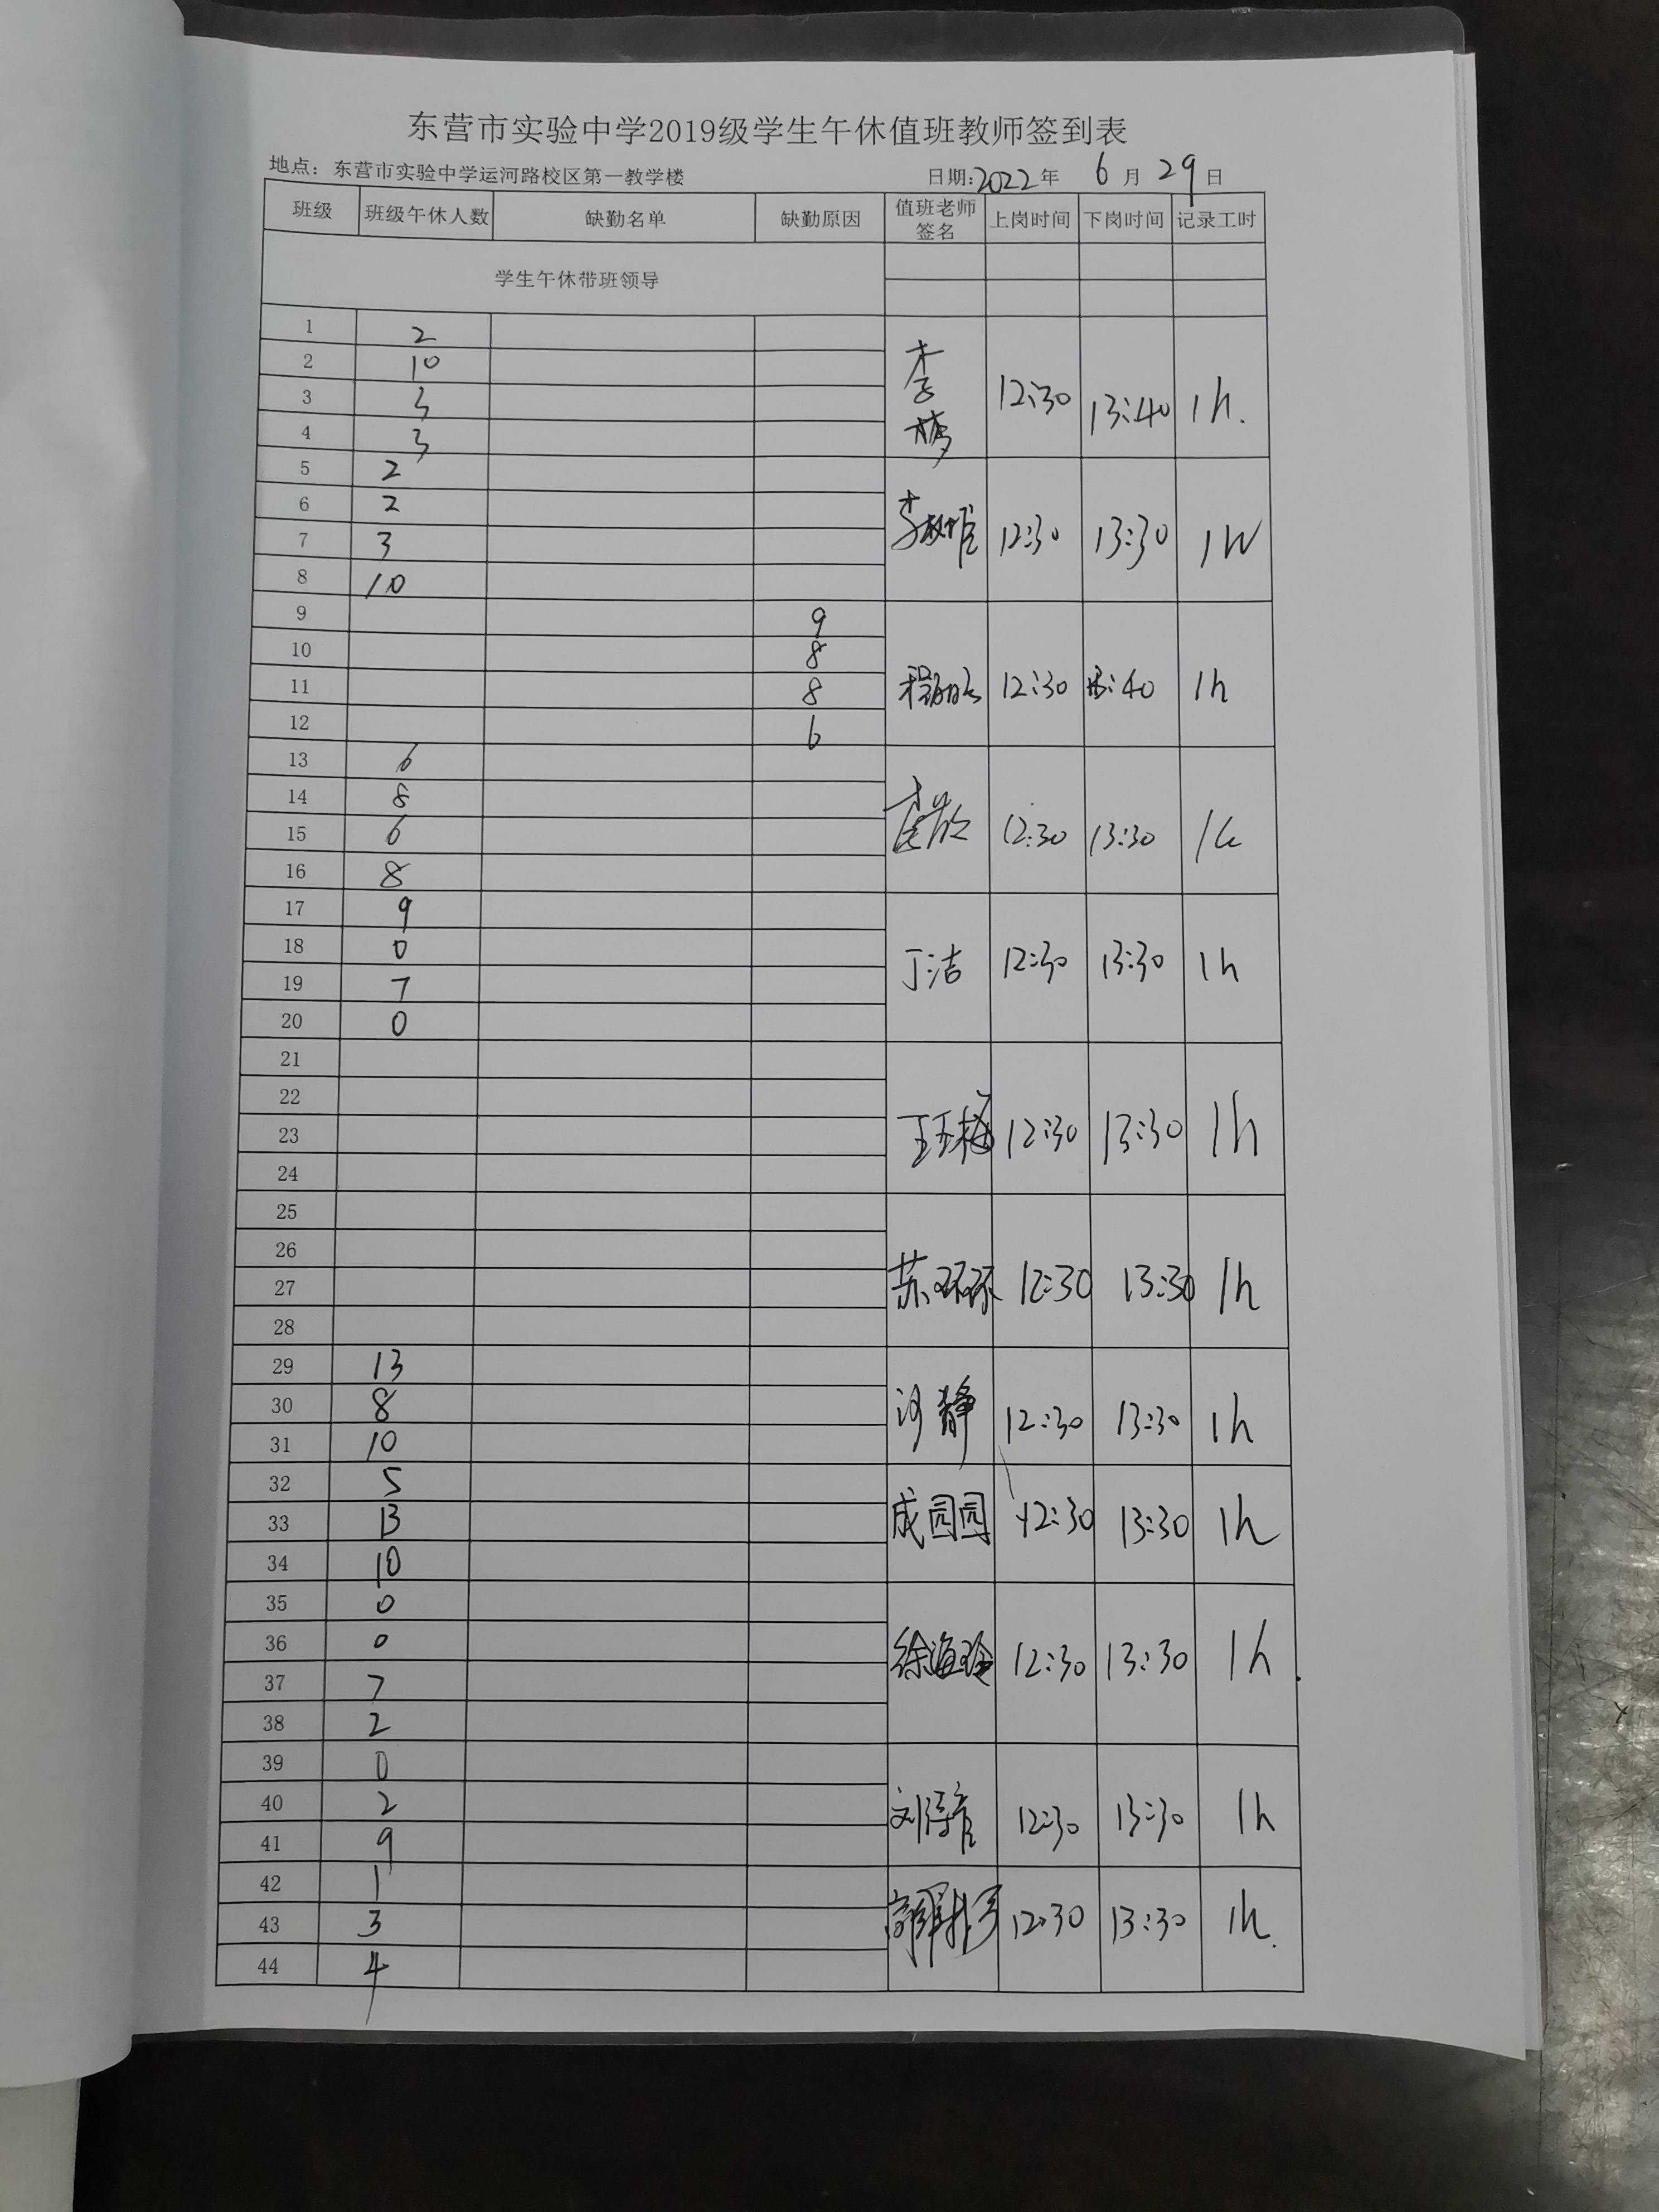 东营市实验中学2019级学生午休值班教师签到表
地点：东营市实验中学运河路校区第一教学楼 日期:2022年 6月29日
班级 班级午休人数 缺勤名单 缺勤原因 值班老师签名 上岗时间 下岗时间 记录工时
学生午休带班领导
1 2
2 10
3 3 李梦 12:30 13:40 1h.
4 3
5 2
6 2
7 3 12:30 13:30 1h
8 10
9 9
10 8
11 8 12:30 13:40 1h
12 6
13 6
14 8
15 6 12:30 13:30 1h
16 8
17 9
18 0
19 7 丁洁 12:30 13:30 1h
20 0
21
22
23 王玉梅 12:30 13:30 1h
24
25
26
27 苏环环 12:30 13:30 1h
28
29 13
30 8 静 12:30 13:30 1h
31 10
32 5
33 13 成园园 12:30 13:30 1h
34 10
35 0
36 0 徐海玲 12:30 13:30 1h
37 7
38 2
39 0
40 2 刘 12:30 13:30 1h
41 9
42 1
43 3 12:30 13:30 1h.
44 4